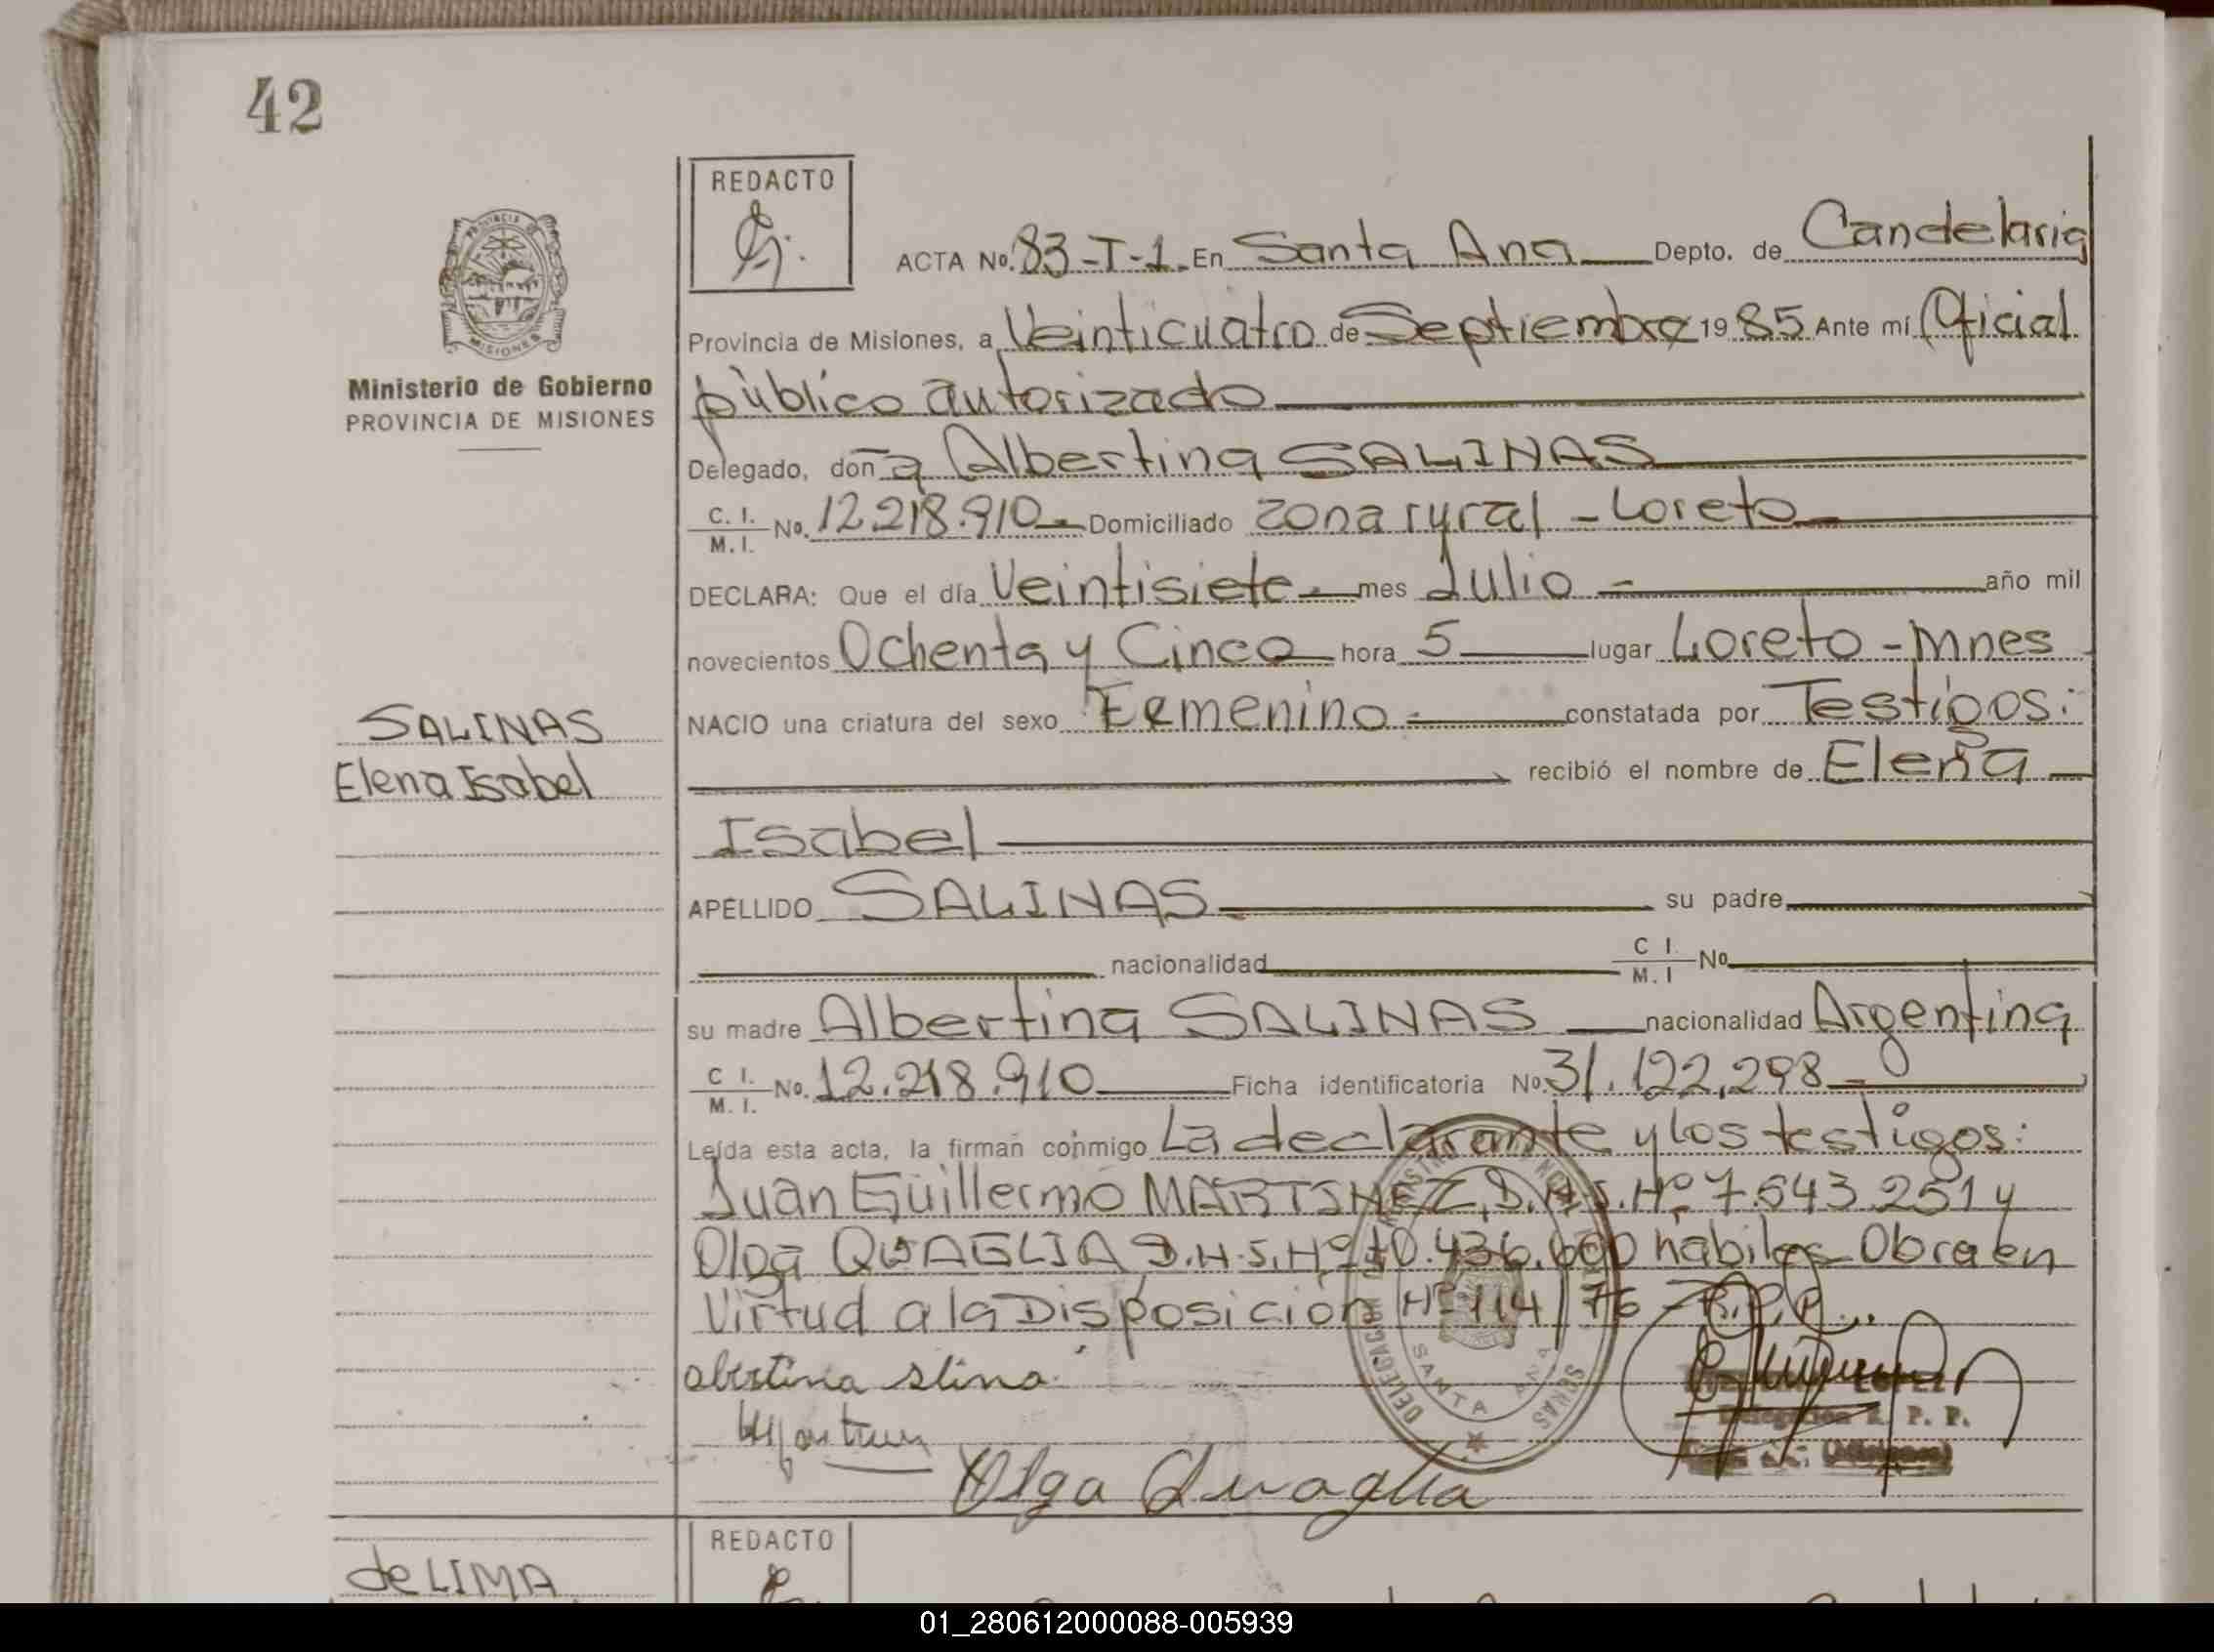 42
REDACTO
ACTA No. 83-T-1 En Santa Ana Depto. de Candelaria
Provincia de Misiones, a Veinticuatro de Septiembre 1985 Ante mí Oficial
público autorizado
Ministerio de Gobierno
PROVINCIA DE MISIONES
Delegado, don a Albertina SALINAS
C. I. M. I. No. 12.218.910 Domiciliado zona rural - Loreto
DECLARA: Que el día Veintisiete mes Julio año mil
novecientos Ochenta y Cinco hora 5 lugar Loreto - Mnes
NACIO una criatura del sexo Femenino constatada por Testigos:
recibió el nombre de Elena
Isabel
SALINAS
Elena Isabel
APELLIDO SALINAS su padre
nacionalidad C I. M. I No
su madre Albertina SALINAS nacionalidad Argentina
C I. M. I. No. 12.218.910 Ficha identificatoria No. 31.122.298
Leída esta acta, la firman conmigo La declarante y los testigos:
Juan Guillermo MARTINEZ, D.N.I. Nº 7.643.251 y
Olga QUAGLIA D.N.I. Nº 10.436.600 hábiles Obra en
Virtud a la Disposición Nº 114/76 - R.P.P.
albertina slina
Olga Quaglia
DELEGACION SANTA ANA
Delegación R. P. P.
(Misiones)
de LIMA
REDACTO
01_280612000088-005939